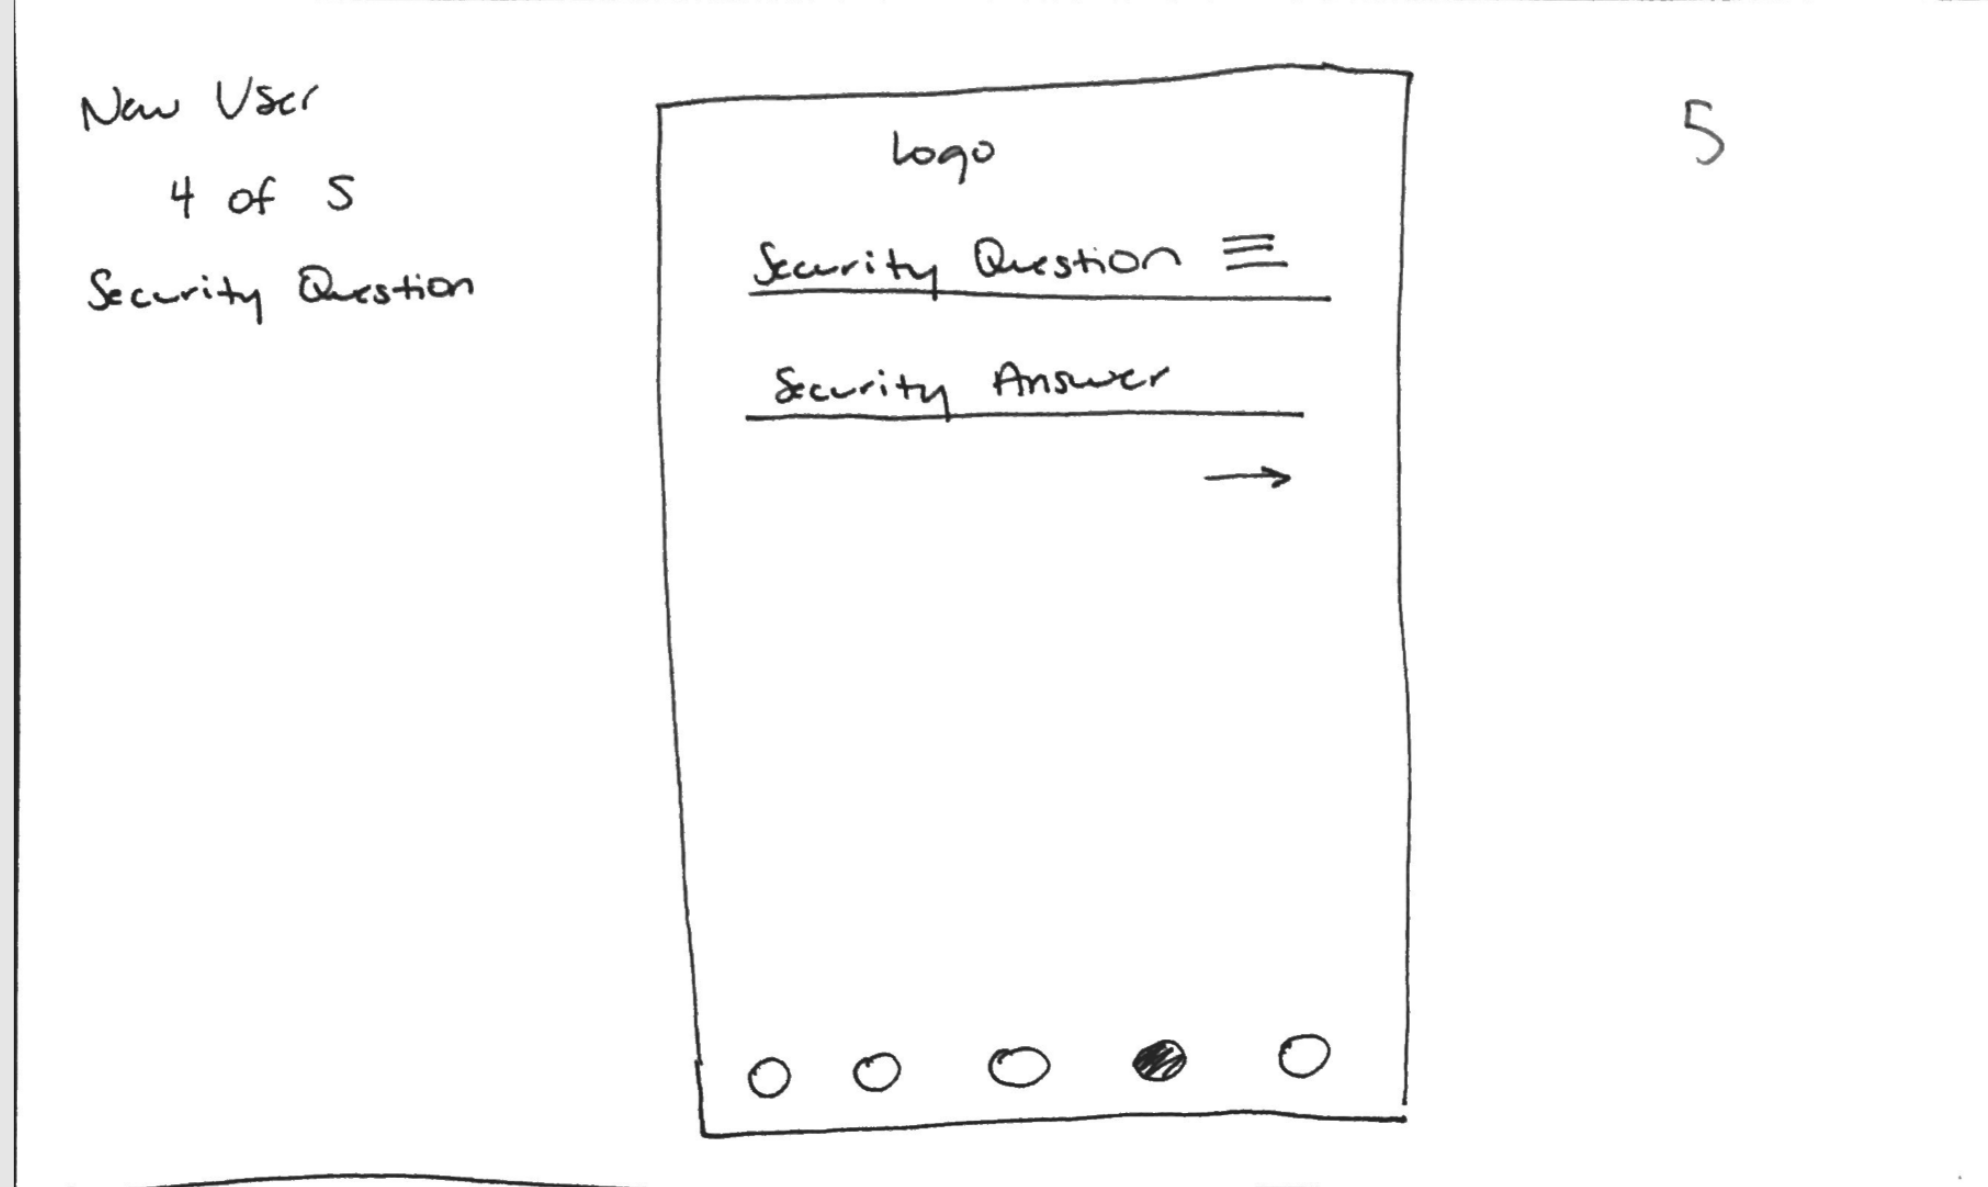 New User
4 of 5
Security Question
Logo
Security Question
Security Answer
5